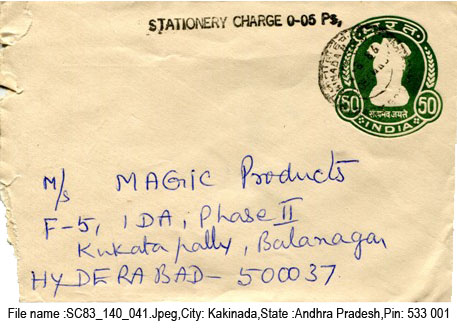 STATIONERY CHARGE 0-05 Ps,
भारत
50 50
सत्यमेव जयते
INDIA
M/s MAGIC Products
F-5, IDA, Phase II
Kukatapally, Balanagar
HYDERABAD - 500037.
File name :SC83_140_041.Jpeg,City: Kakinada,State :Andhra Pradesh,Pin: 533 001